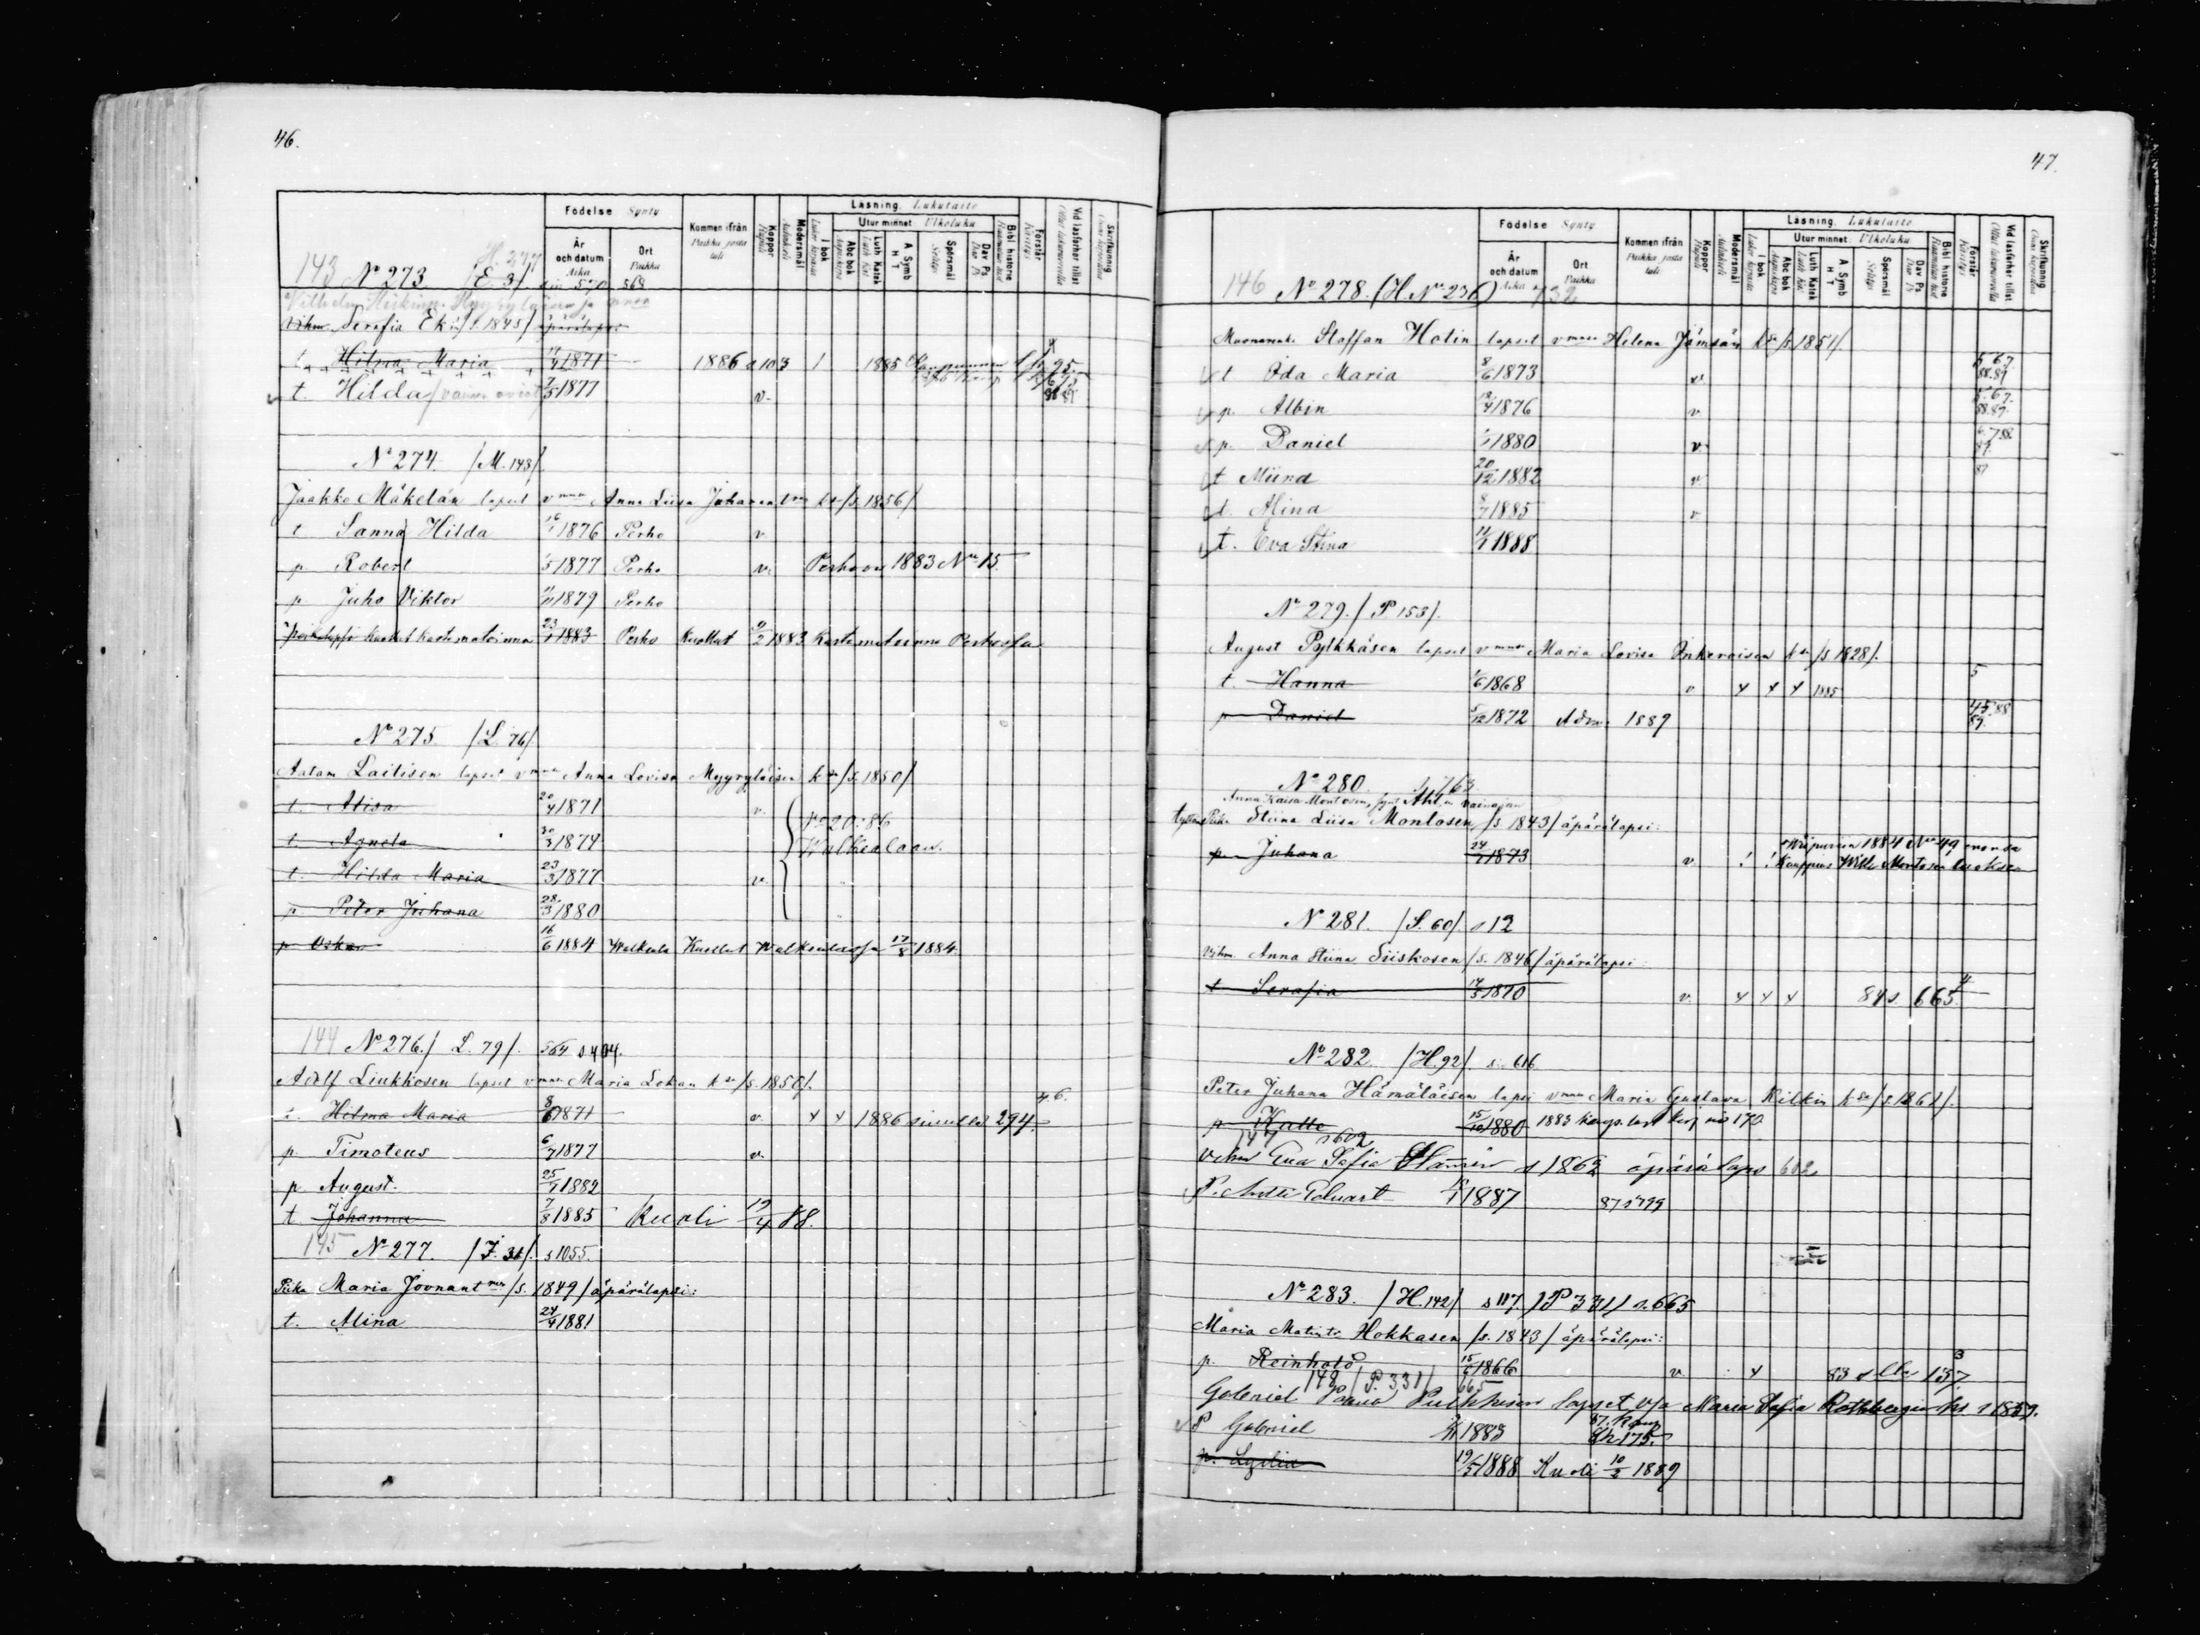 46.
Födelse Synty
Kommen ifrån Paikka josta tuli
Koppor
Modersmål
Läsning. Lukutaito
I bok
Utur minnet Ulkoluku
Abc bok
Luth Katek
A Symb H T
Spörsmål
Dav Ps
Bibl historie
Förstår
Vid läsförhör tillst
Skrifkunnig
År och datum Aika
Ort Paikka
143 No 273 /E. 3/ H. 277
570 568
Vihm Serafia Ek /s. 1845/ äpärälapsi
t. Hilma Maria 1871 1886 s 103 1 1885
t. Hilda 1877 v.
No 274. /M. 143/
Jaakko Mäkelän lapset vmon Anna Liisa Juhanan tr ksa /s. 1856/
t Sanna Hilda 1876 Perho v
p Robert 1877 Perho v. Perhoon 1883 No 15.
p Juho Viktor 1879 Perho
poikalapsi kuollut kastamatoinna 23/1 1883 Perho Kuollut 9/2 1883 kastamatoinna Perhossa
No 275. /L. 76/
Aatam Laitisen lapset vmon Anna Lovisa Myyryläisen ksa /s. 1850/
t. Alisa 20/4 1871 v.
No 20. 86
t. Agneta 30/3 1874 Walkealaan.
t. Hilda Maria 23/3 1877 v.
p Peter Juhana 28/3 1880
p Oskar 16/6 1884 Walkeala Kuollut Walkealassa 17/8 1884.
144 No 276./ L. 79/. 564 s 404.
Adolf Liukkosen lapset vmon Maria Lokan ksa /s. 1850/.
t. Hilma Maria 8/6 1871 v. 4 4 1886 sivulla 294. 4.6.
p. Timoteus 6/7 1877 v.
p. August. 25/1 1882
t. Johanna 7/8 1885 Kuoli 19/4 88.
145 No 277. /J. 31/. s 1055.
Piika Maria Joonant /s. 1849/ äpärälapsi:
t. Alina 24/4 1881
47.
Födelse Synty
Kommen ifrån Paikka josta tuli
Koppor
Modersmål
Läsning. Lukutaito
I bok
Utur minnet Ulkoluku
Abc bok
Luth Katek
A Symb H T
Spörsmål
Dav Ps
Bibl historie
Förstår
Vid läsförhör tillst
Skrifkunnig
År och datum Aika
Ort Paikka
146 No 278. (H. No 236) 732
Muonamie. Staffan Hotin lapset vmon Helena Jämsän ksa /s. 1851/.
t Ida Maria 8/6 1873 v. 5.67. 88.89
p. Albin 12/4 1876 v 5.67. 88.89.
p. Daniel 1880 v 6.788. 89.
t Miina 20/12 1882 v. 89
t. Alina 8/7 1885 v
t. Eva Stina 1888
No 279. / P. 153/.
August Pylkkäsen lapset vmon Maria Lovisa Inkeroisen ksa /s. 1828/.
t. Hanna 1868 v 4 4 4 1885 5
p Daniel 1872 Adm. 1889 45.88 89.
No 280.
Anna Kaisa Montosen, synt Ahl
Piika Stiina Liisa Montosen /s. 1843/ äpärälapsi:
p. Juhana 24/7 1873 v. Wiipuriin 1884 No 49
No 281. /S. 60/. s 12
Vihm. Anna Stiina Siiskosen /s. 1846/ äpärälapsi:
t Serafia 14/5 1870 v. 4 4 4 84 s. 665. 4
No 282. /H. 92/. s. 616
Peter Juhana Hämäläisen lapsi vmon Maria Gustava Kilkin ksa /s. 1861/.
p Kalle 15/10 1880 1883 kaup. last kirj no 170
147 s 602
Vihm Eva Sofia s 1862 äpärä laps 602.
P. Antti Eduart 1887 87 s 799
No 283. /H. 142/ s 117 /P 331/ s. 665
Maria Matintr. Hokkasen /s. 1843/ äpärälapsi:
p. Reinhold 15/6 1866 v. 4 83 s 157. 3
148 / P. 331/ 665
Gabriel Paavo Pulkkisen lapset v/a Maria Sofia Rothbergin ks s 1859.
P Gabriel 1883 87. Kaup 175.
p. Lydia 19/5 1888 Kuoli 10/2 1889